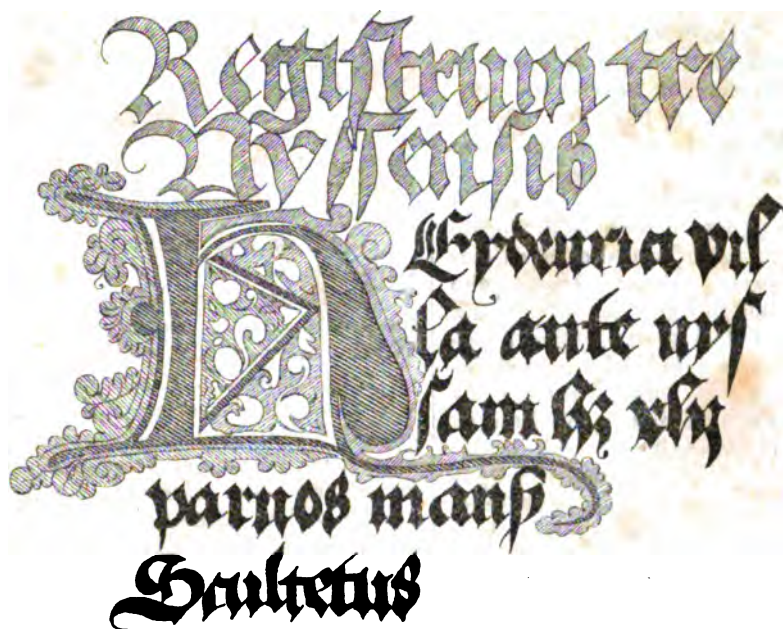 Registrum tre
Nyssensis
HEydenrici vil
la ante nys
sam hz xlij
parvos mans
Scultetus